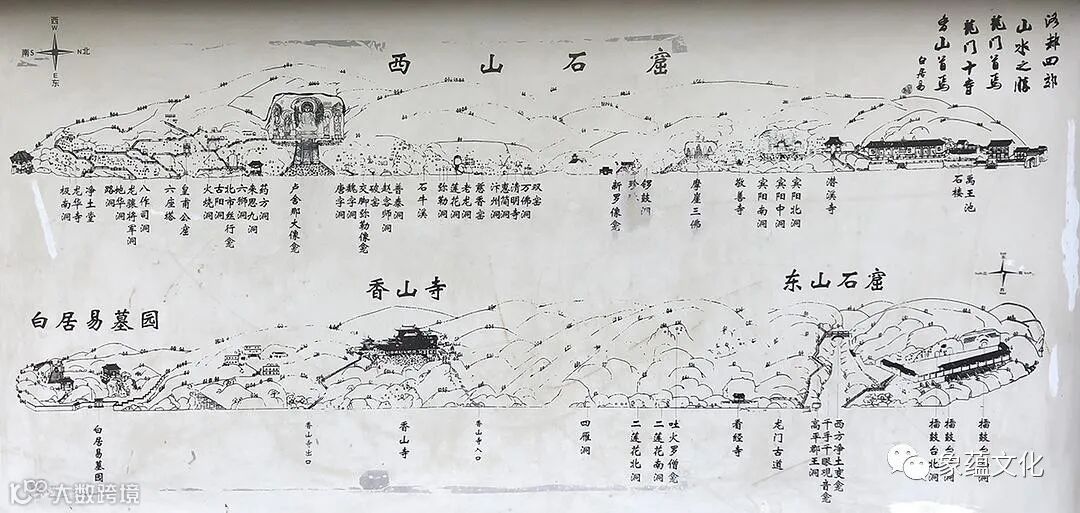 洛都四郊
山水之勝
龍門首焉
龍門十寺
香山首焉
白居易
西W
南S
N北
E东
西山石窟
万王池
石楼
潜溪寺
宾阳北洞
宾阳中洞
宾阳南洞
敬善寺
摩崖三佛
锣鼓洞
新罗像龛
双窑
万佛洞
清明寺
惠简洞
汴州洞
慈香窑
老龙洞
莲花洞
弥勒洞
石牛溪
普泰洞
赵客师洞
破窑
交脚弥勒像龛
魏字洞
唐字洞
卢舍那大像龛
药方洞
来思九洞
六狮洞
北市丝行龛
古阳洞
火烧洞
皇甫公窟
六座塔
八作司洞
龙骧将军洞
地华洞
路洞
净土堂
龙华寺
极南洞
香山寺
东山石窟
白居易墓园
白居易墓园
香山寺出口
香山寺
香山寺入口
四雁洞
二莲花北洞
二莲花南洞
吐火罗僧龛
看经寺
龙门古道
高平郡王洞
千手千眼观音龛
西方净土变龛
擂鼓台北洞
象蕴文化
大数跨境